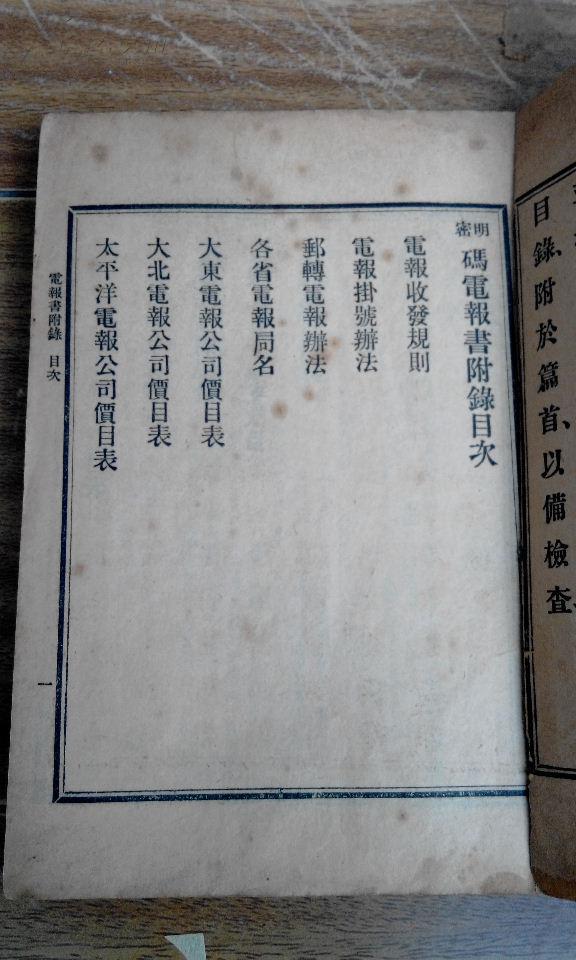 目錄、附於篇首、以備檢查、
明密碼電報書附錄目次
電報收發規則
電報掛號辦法
郵轉電報辦法
各省電報局名
大東電報公司價目表
大北電報公司價目表
太平洋電報公司價目表
電報書附錄 目次
一